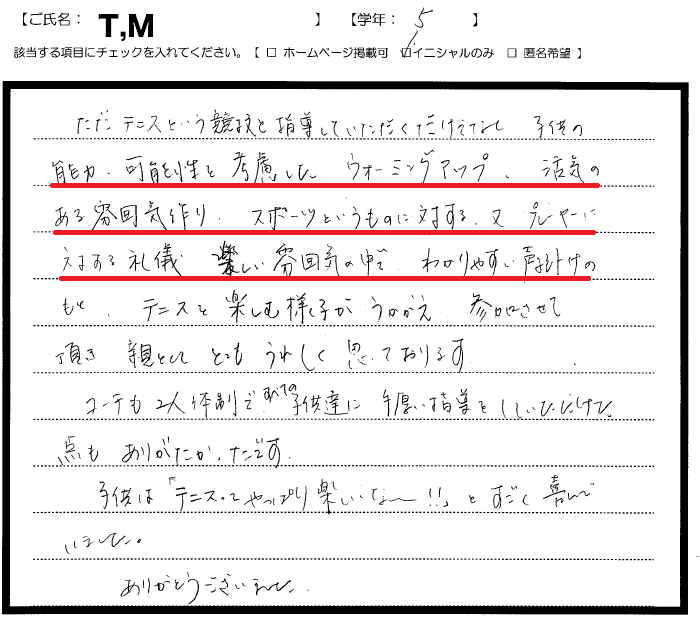 【ご氏名: T,M 】 【学年: 5 】
該当する項目にチェックを入れてください。【 □ ホームページ掲載可 ☑イニシャルのみ □ 匿名希望 】
ただ テニスという競技を指導していただくだけでなく 子供の
能力、可能性を考慮した ウォーミングアップ、活気の
ある雰囲気作り、スポーツというものに対する、又プレーヤーに
対する礼儀 楽しい雰囲気の中で わかりやすい声掛けの
もと、テニスを楽しむ様子が うかがえ 参加させて
頂き 親として とても うれしく 思っております
コーチも 2人体制で すべての子供達に 手厚い指導をしていただけた
点も ありがたかったです。
子供は「テニスってやっぱり楽しいなー!!」と すごく喜んで
いました。
ありがとうございました.